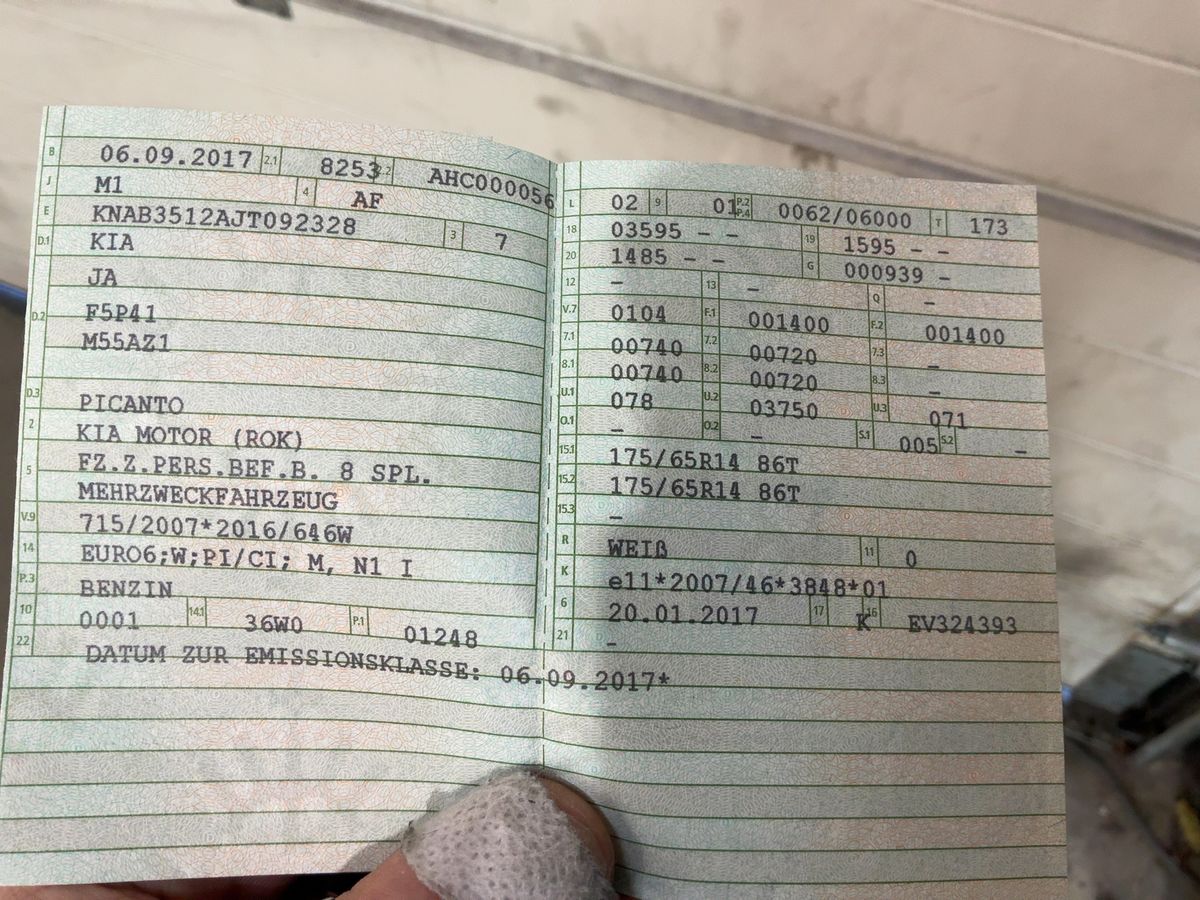 B 06.09.2017 2.1 8253 2.2 AHC000056
J M1 4 AF
E KNAB3512AJT092328 3 7
D.1 KIA
JA
D.2 F5P41
M55AZ1
D.3 PICANTO
2 KIA MOTOR (ROK)
5 FZ.Z.PERS.BEF.B. 8 SPL.
MEHRZWECKFAHRZEUG
V.9 715/2007*2016/646W
14 EURO6;W;PI/CI; M, N1 I
P.3 BENZIN
10 0001 14.1 36W0 P.1 01248
22 DATUM ZUR EMISSIONSKLASSE: 06.09.2017*
L 02 9 01 P.2 P.4 0062/06000 T 173
18 03595 - - 19 1595 - -
20 1485 - - G 000939 -
12 - 13 - Q -
V.7 0104 F.1 001400 F.2 001400
7.1 00740 7.2 00720 7.3 -
8.1 00740 8.2 00720 8.3 -
U.1 078 U.2 03750 U.3 071
O.1 - O.2 - S.1 005 S.2 -
15.1 175/65R14 86T
15.2 175/65R14 86T
15.3 -
R WEIß 11 0
K e11*2007/46*3848*01
6 20.01.2017 17 K 16 EV324393
21 -